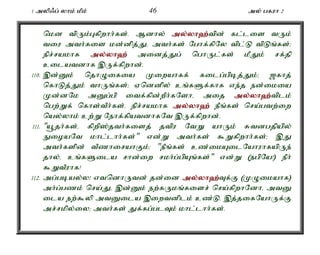 1 அலிஃப் லாம் மீம் 46 அல் பகரா 2
மென விரும்புகிறார்கள். ஆனால் அல்லாஹ்வின் கட்டளை வரும்
வரை அவர்களை மன்னித்து, அவர்கள் போக்கிலே விட்டு விடுங்கள்;
நிச்சயமாக அல்லாஹ் அனைத்துப் பொருட்கள் மீதும் சக்தி
உடையவனாக இருக்கிறான்.
110. இன்னும் தொழுகையை முறையாகக் கடைப்பிடித்தும்; ஜகாத்
கொடுத்தும் வாருங்கள்; ஏனெனில் உங்களுக்காக எந்த நன்மையை
முன்னமே அனுப்பி வைக்கின்றீர்களோ, அதை அல்லாஹ்விடம்
பெற்றுக் கொள்வீர்கள். நிச்சயமாக அல்லாஹ் நீங்கள் செய்பவற்றை
யெல்லாம் உற்று நோக்கியவனாகவே இருக்கிறான்.
111. "யூதர்கள், கிறிஸ்தவர்களைத் தவிர வேறு யாரும் சுவனபதியில்
நுழையவே மாட்டார்கள்" என்று அவர்கள் கூறுகிறார்கள்; இது
அவர்களின் வீணாசையாகும்; "நீங்கள் உண்மையுடையோராகயிருந்
தால், உங்களுடைய சான்றை சமர்ப்பியுங்கள்" என்று (நபியே!) நீர்
கூறுவீராக!
112. அப்படியல்ல! எவனொருவன் தன்னை அல்லாஹ்வுக்கு (முழுமையாக)
அர்ப்பணம் செய்து, இன்னும் நற்கருமங்களைச் செய்கிறானோ, அவனு
டைய நற்கூலி அவனுடைய இறைவனிடம் உண்டு. இத்தகையோருக்கு
அச்சமில்லை; அவர்கள் துக்கப்படவும் மாட்டார்கள்.